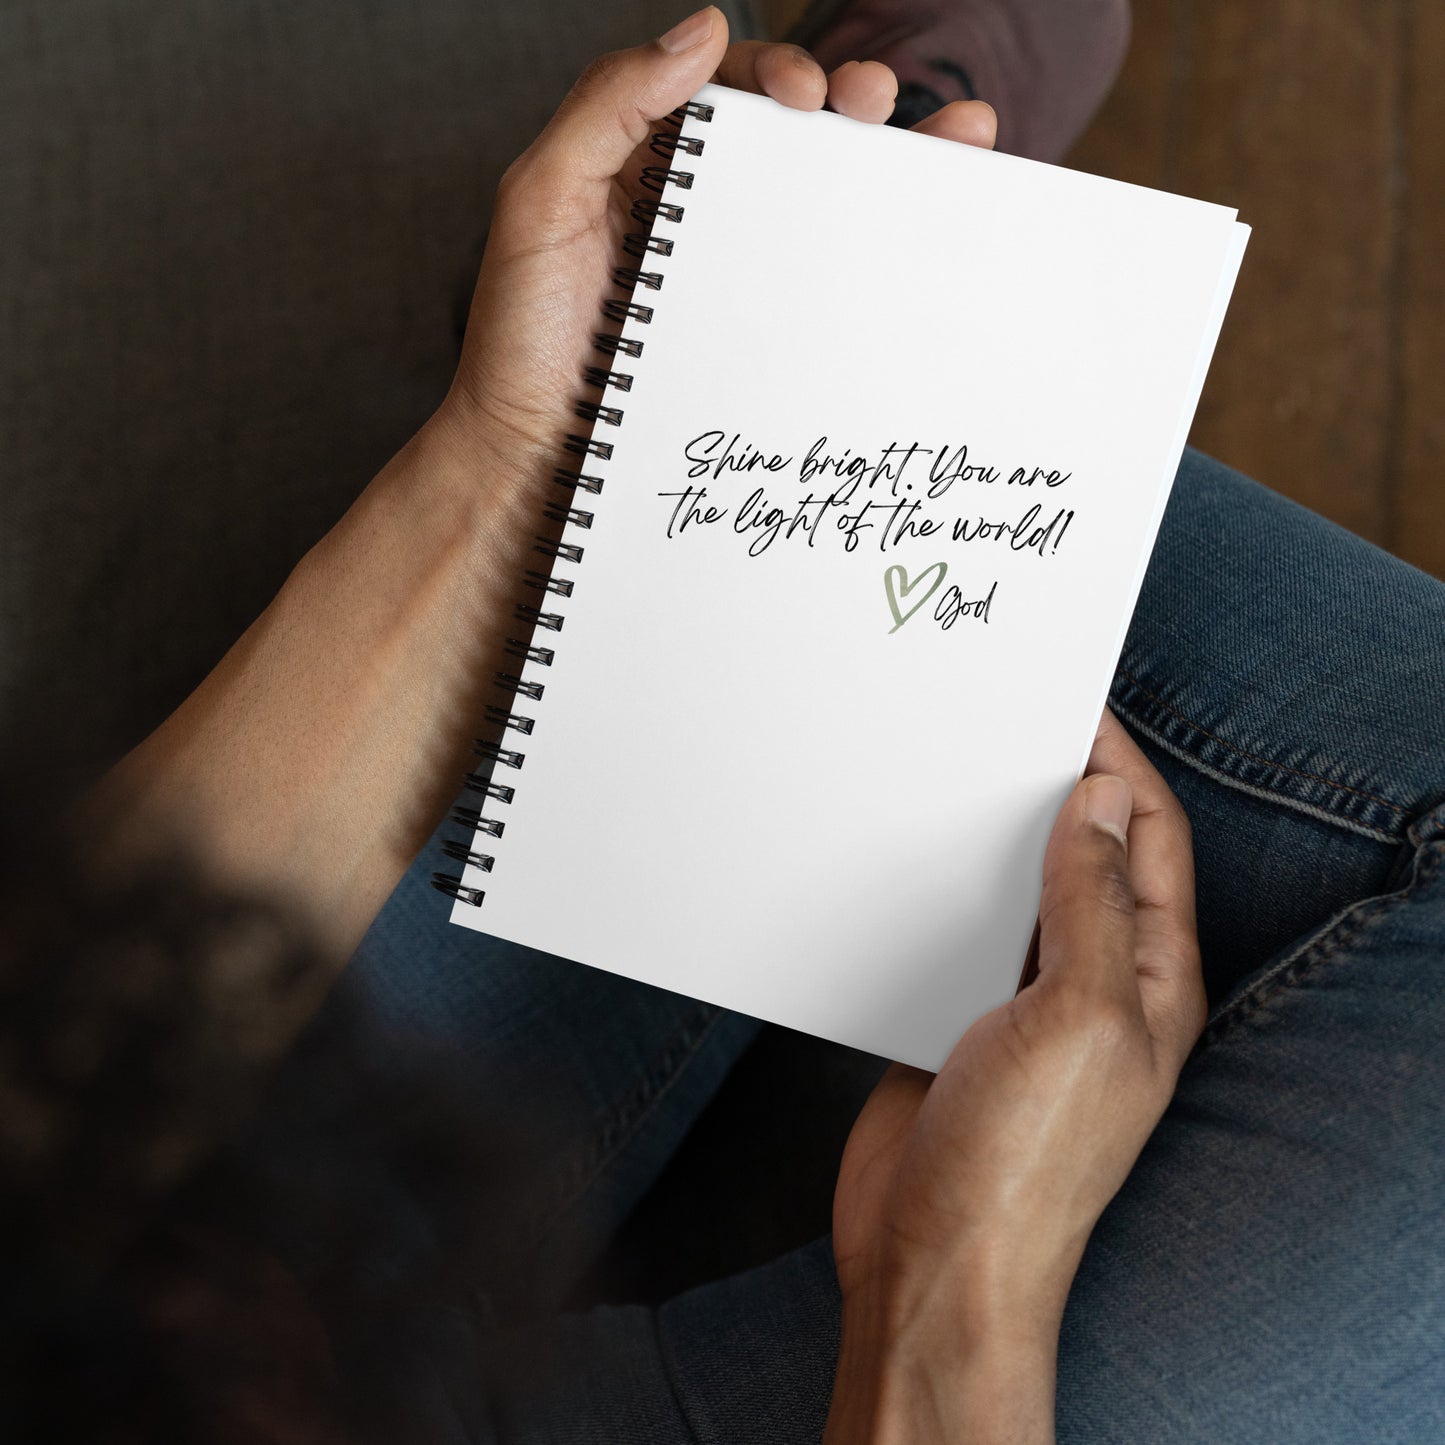 Shine bright. You are
the light of the world!
God